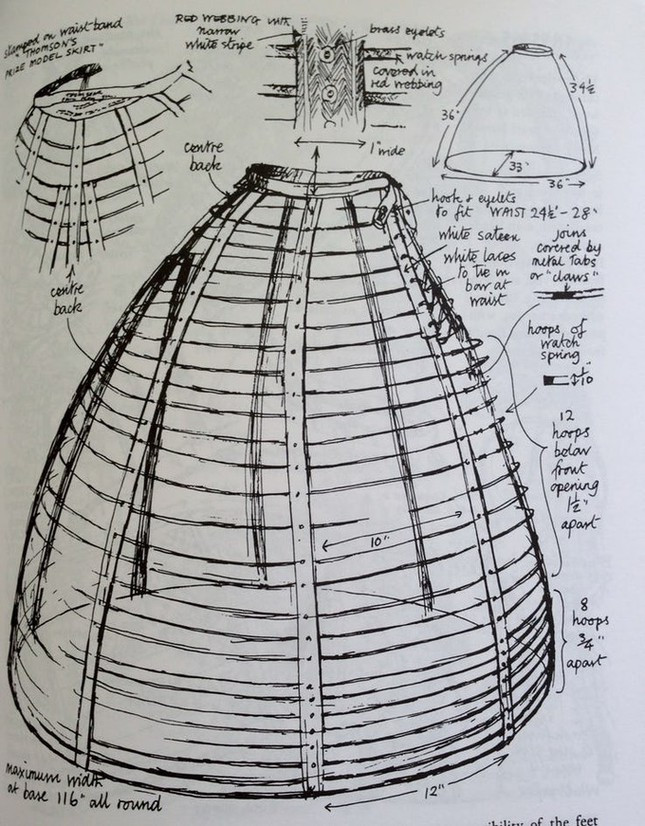 stamped on waist band
"THOMSON'S
PRIZE MODEL SKIRT"
RED WEBBING with
narrow
white stripe
brass eyelets
watch springs
covered in
red webbing
1" wide
36"
34½
33"
36"
centre
back
centre
back
hook & eyelets
to fit WAIST 24½"-28"
white sateen
white laces
to tie in
bar at
waist
joins
covered by
metal tabs
or "claws"
hoops of
watch
spring
1/10
12
hoops
below
front
opening
1½"
apart
10"
8
hoops
¾"
apart
maximum width
at base 116" all round
12"
ibility of the feet